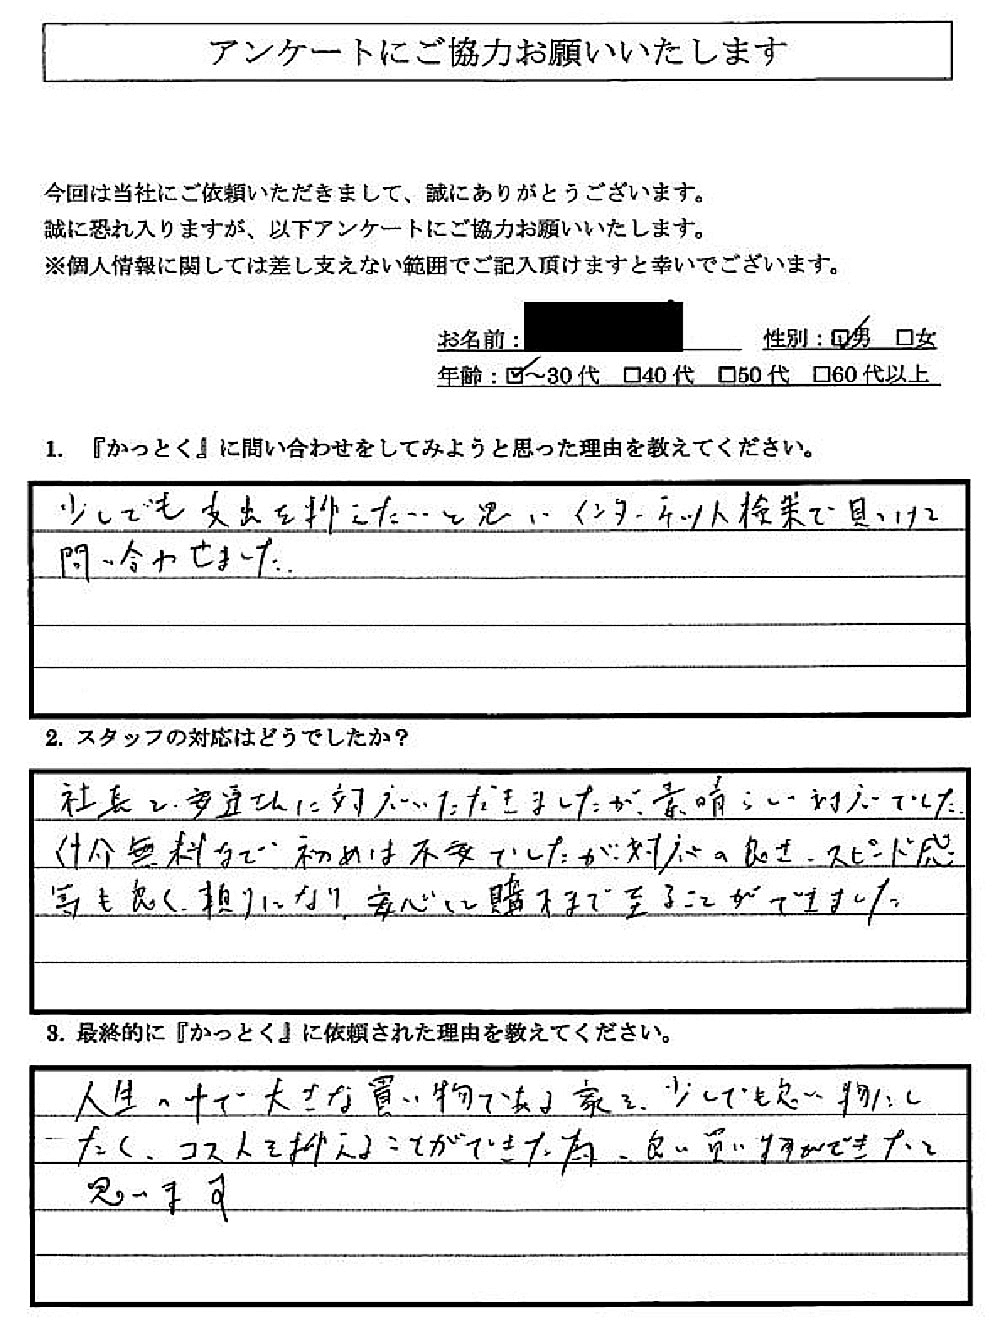 アンケートにご協力お願いいたします
今回は当社にご依頼いただきまして、誠にありがとうございます。
誠に恐れ入りますが、以下アンケートにご協力お願いいたします。
※個人情報に関しては差し支えない範囲でご記入頂けますと幸いでございます。
お名前： 性別：☑男 □女
年齢：☑～30代 □40代 □50代 □60代以上
1. 『かっとく』に問い合わせをしてみようと思った理由を教えてください。
少しでも支出を抑えたいと思い インターネット検索で見つけて
問い合わせました。
2. スタッフの対応はどうでしたか？
社長と、さんに対応いただきましたが、素晴らしい対応でした。
仲介無料なで 初めは不安でしたが、対応の良さ、スピード感
等も良く、頼りになり、安心して購入まで至ることができました。
3. 最終的に『かっとく』に依頼された理由を教えてください。
人生の中で大きな買い物である家を、少しでも良い物にし
たく、コストを抑えることができた為、良い買い物ができたと
思います